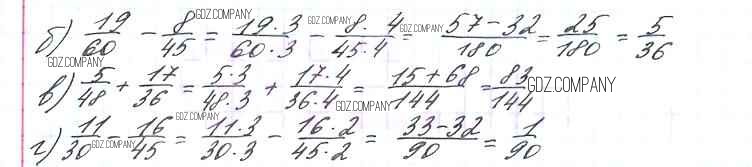 б) 19/60 - 8/45 = 19·3/60·3 - 8·4/45·4 = 57-32/180 = 25/180 = 5/36
в) 5/48 + 17/36 = 5·3/48·3 + 17·4/36·4 = 15+68/144 = 83/144
г) 11/30 - 16/45 = 11·3/30·3 - 16·2/45·2 = 33-32/90 = 1/90
GDZ.COMPANY
GDZ.COMPANY
GDZ.COMPANY
GDZ.COMPANY
GDZ.COMPANY
GDZ.COMPANY
GDZ.COMPANY
GDZ.COMPANY
GDZ.COMPANY